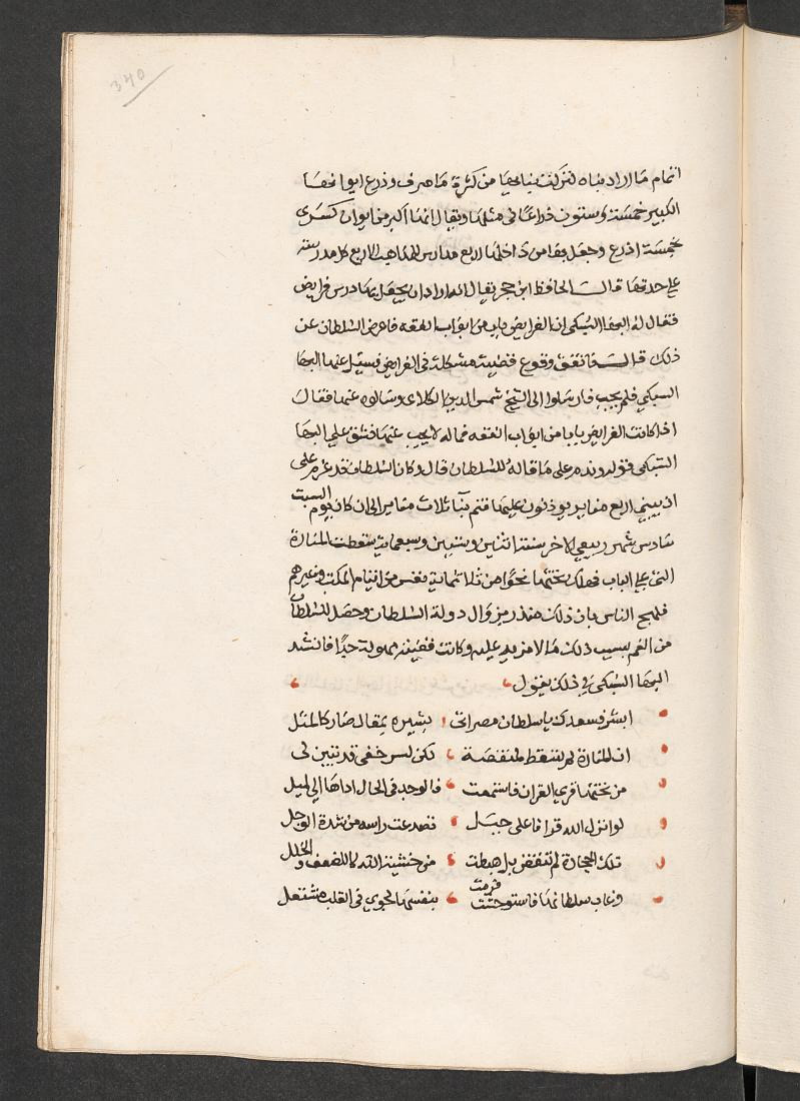 340
اتمام ما اراد بناه لتركت بنايها من كثرة ما صرف وذرع ايوانها
الكبير خمسة وستون ذراعا في مثلها ويقال انها اكبر من ايوان كسرى
بخمسة اذرع وجعل بها من داخلها اربع مدارس للمذاهب الاربع كل مدرسته
علي حدتها قال الحافظ ابن حجر يقال انه اراد ان يجعل بها درس فرايض
فقال له البها السبكي ان الفرايض باب من ابواب الفقه فاعرض السلطان عن
ذلك قال فاتفق وقوع قضية مشكلة في الفرايض فسيل عنها البها
السبكي فلم يجب فارسلوا الى الشيخ شمس الدين الكلاي وسالوه عنها فقال
اذا كانت الفرايض بابا من ابواب الفقه فماله لا يجيب عنها فشق علي البها
السبكي قوله وندم على ما قاله للسلطان قال وكان السلطان قد عزم على
ان يبني اربع مناير يوذنون عليها فتم بنا ثلاث مناير الى ان كان يوم السبت
سادس شهر ربيع الاخر سنة اثنين وستين وسبعماية سقطت المنارة
التي علي الباب فهلك تحتها نحوا من ثلاثماية نفس من ايتام المكتب وغيرهم
فلهج الناس بان ذلك منذر بزوال دولة السلطان وحصل للسلطان
من الغم بسبب ذلك ما لا مزيد عليه وكانت قضيته مهولة جدا فانشد
البها السبكي في ذلك يقول
ابشر فسعدك يا سلطان مصر اتى بشيره بمقال صار كالمثل
ان المنارة لم تسقط لمنقصة لكن لسر خفي قد تبين لي
من تحتها قري القران فاستمعت فالوجد في الحال اداها الي الميل
لو انزل الله قرانا على جبل تصدعت راسه من شدة الوجل
تلك الحجارة لم تنقض بل هبطت من خشية الله لا للضعف والخلل
وغاب سلطانها فاستوحشت فرمت بنفسها لجوي في القلب مشتعل